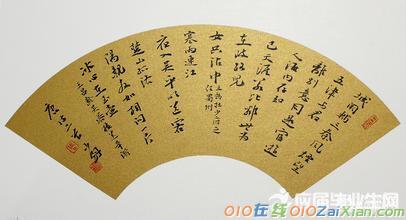 城阙辅三秦风烟望
五津与君
离别意同是宦游
人海内存知
己天涯若比邻无为
在歧路儿
女共沾巾
寒雨连江
夜入吴平明送客
楚山孤洛
阳亲友如相问一片
冰心在玉壶
应届毕业生网
010在线 010ZaiXian.com